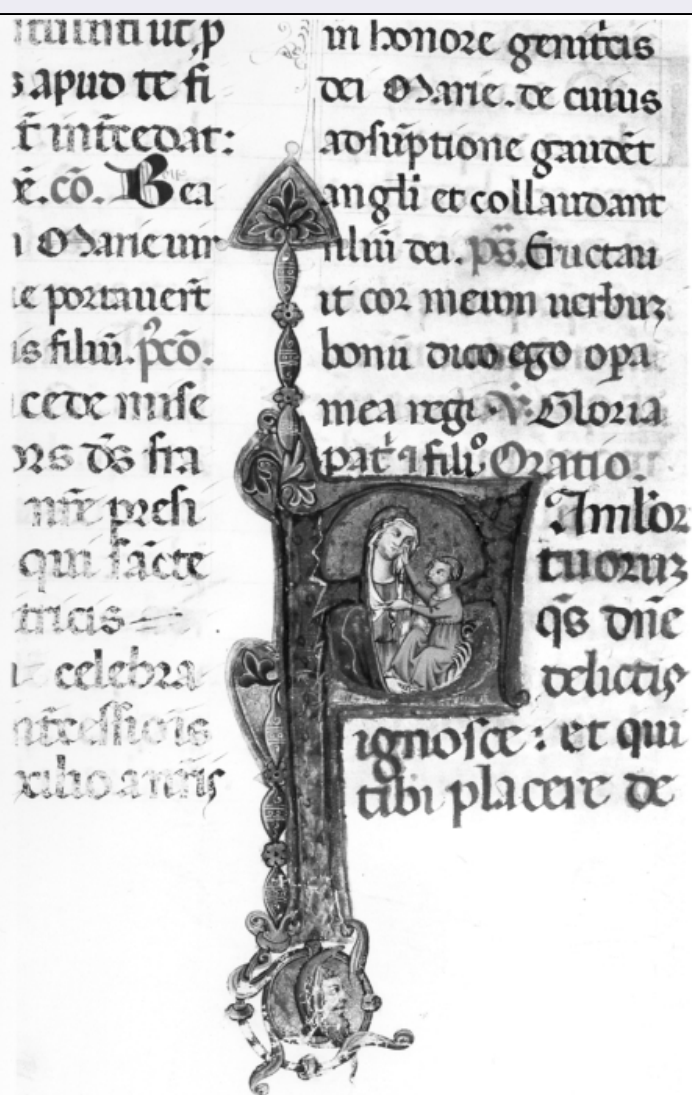 apud te fi
cō. Bea
Marie uir
e portauerīt
is filiū. p̄cō.
cede mise
ds fra
presi
qui sācte
tricis
celebra
in honore genitͥcis
dei Marie. de cuius
adsūptione gaudēt
angłi et collaudant
filiū dei. p̄s. Eructau
it cor meum uerbuꝫ
bonū dico ego oꝑa
mea regi. V̄. Gloria
patͥ ⁊ filiͦ. Oratio.
Famłor
tuoruꝫ
q̄s dn̄e
delictis
ignosce: et qui
tibi placere de